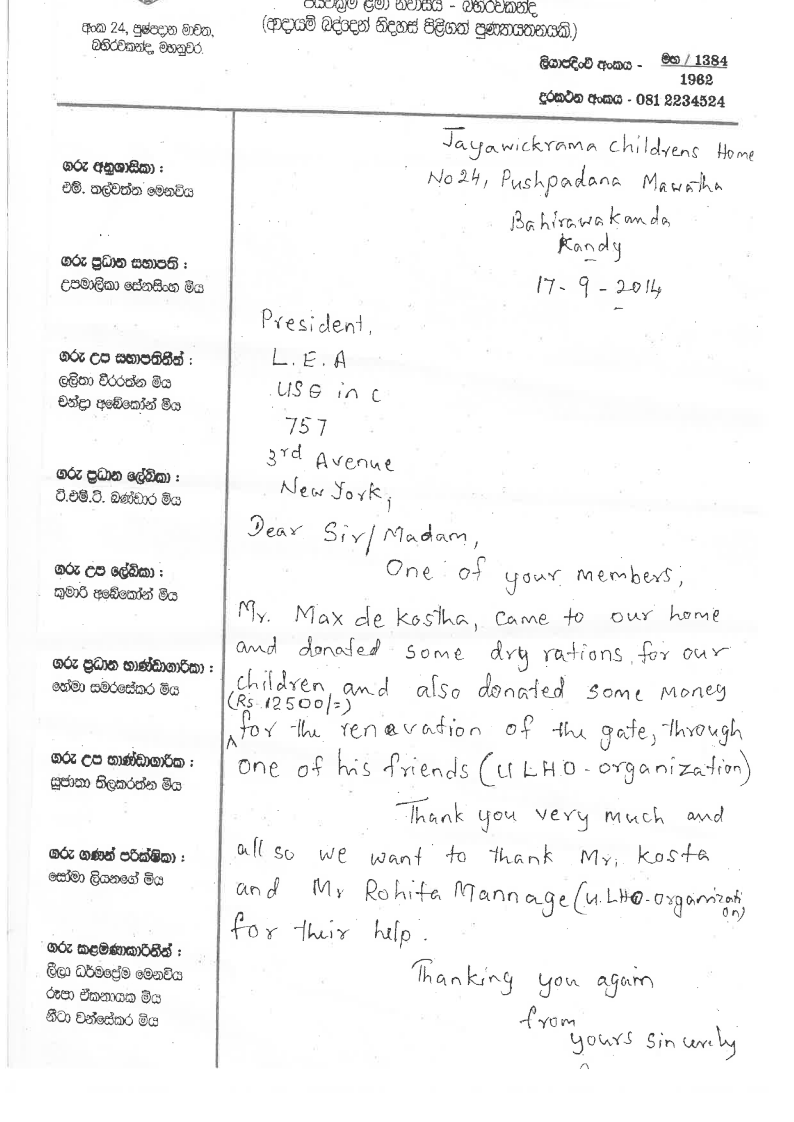 ජයවික්‍රම ළමා නිවාසය - බහිරවකන්ද
(ආදායම් බද්දෙන් නිදහස් පිළිගත් පුණ්‍යායතනයකි.)
අංක 24, පුෂ්පදාන මාවත,
බහිරවකන්ද, මහනුවර.
ලියාපදිංචි අංකය - මහ / 1384
1962
දුරකථන අංකය - 081 2234524
Jayawickrama Childrens Home
No 24, Pushpadana Mawatha
Bahirawakanda
Kandy
17 - 9 - 2014
ගරු අනුශාසිකා :
එම්. කල්වත්ත මෙනවිය
ගරු ප්‍රධාන සභාපති :
උපමාලිකා සේනසිංහ මිය
ගරු උප සභාපතිනීන් :
ලලිතා වීරරත්න මිය
චන්ද්‍රා අබේකෝන් මිය
ගරු ප්‍රධාන ලේඛිකා :
ටී.එම්.ටී. බණ්ඩාර මිය
ගරු උප ලේඛිකා :
කුමාරි අබේකෝන් මිය
ගරු ප්‍රධාන භාණ්ඩාගාරිකා :
හේමා සමරසේකර මිය
ගරු උප භාණ්ඩාගාරික :
සුජාතා තිලකරත්න මිය
ගරු ගණන් පරික්ෂිකා :
සෝමා ලියනගේ මිය
ගරු කළමණාකාරිනීන් :
ලීලා ධර්මප්‍රේම මෙනවිය
රූපා ඒකනායක මිය
නීටා වන්සේකර මිය
President,
L. E. A
USG in C
757
3rd Avenue
New York,
Dear Sir/Madam,
One of your members,
Mr. Max de Kostha, came to our home
and donated some dry rations, for our
children, and also donated some money
(Rs 12500/=)
for the renavation of the gate, through
one of his friends (U L H O - organization)
Thank you very much and
all so we want to thank Mr, Kosta
and Mr Rohita Mannage (U. LHO-organizati
on)
for their help.
Thanking you again
from
yours sincerely